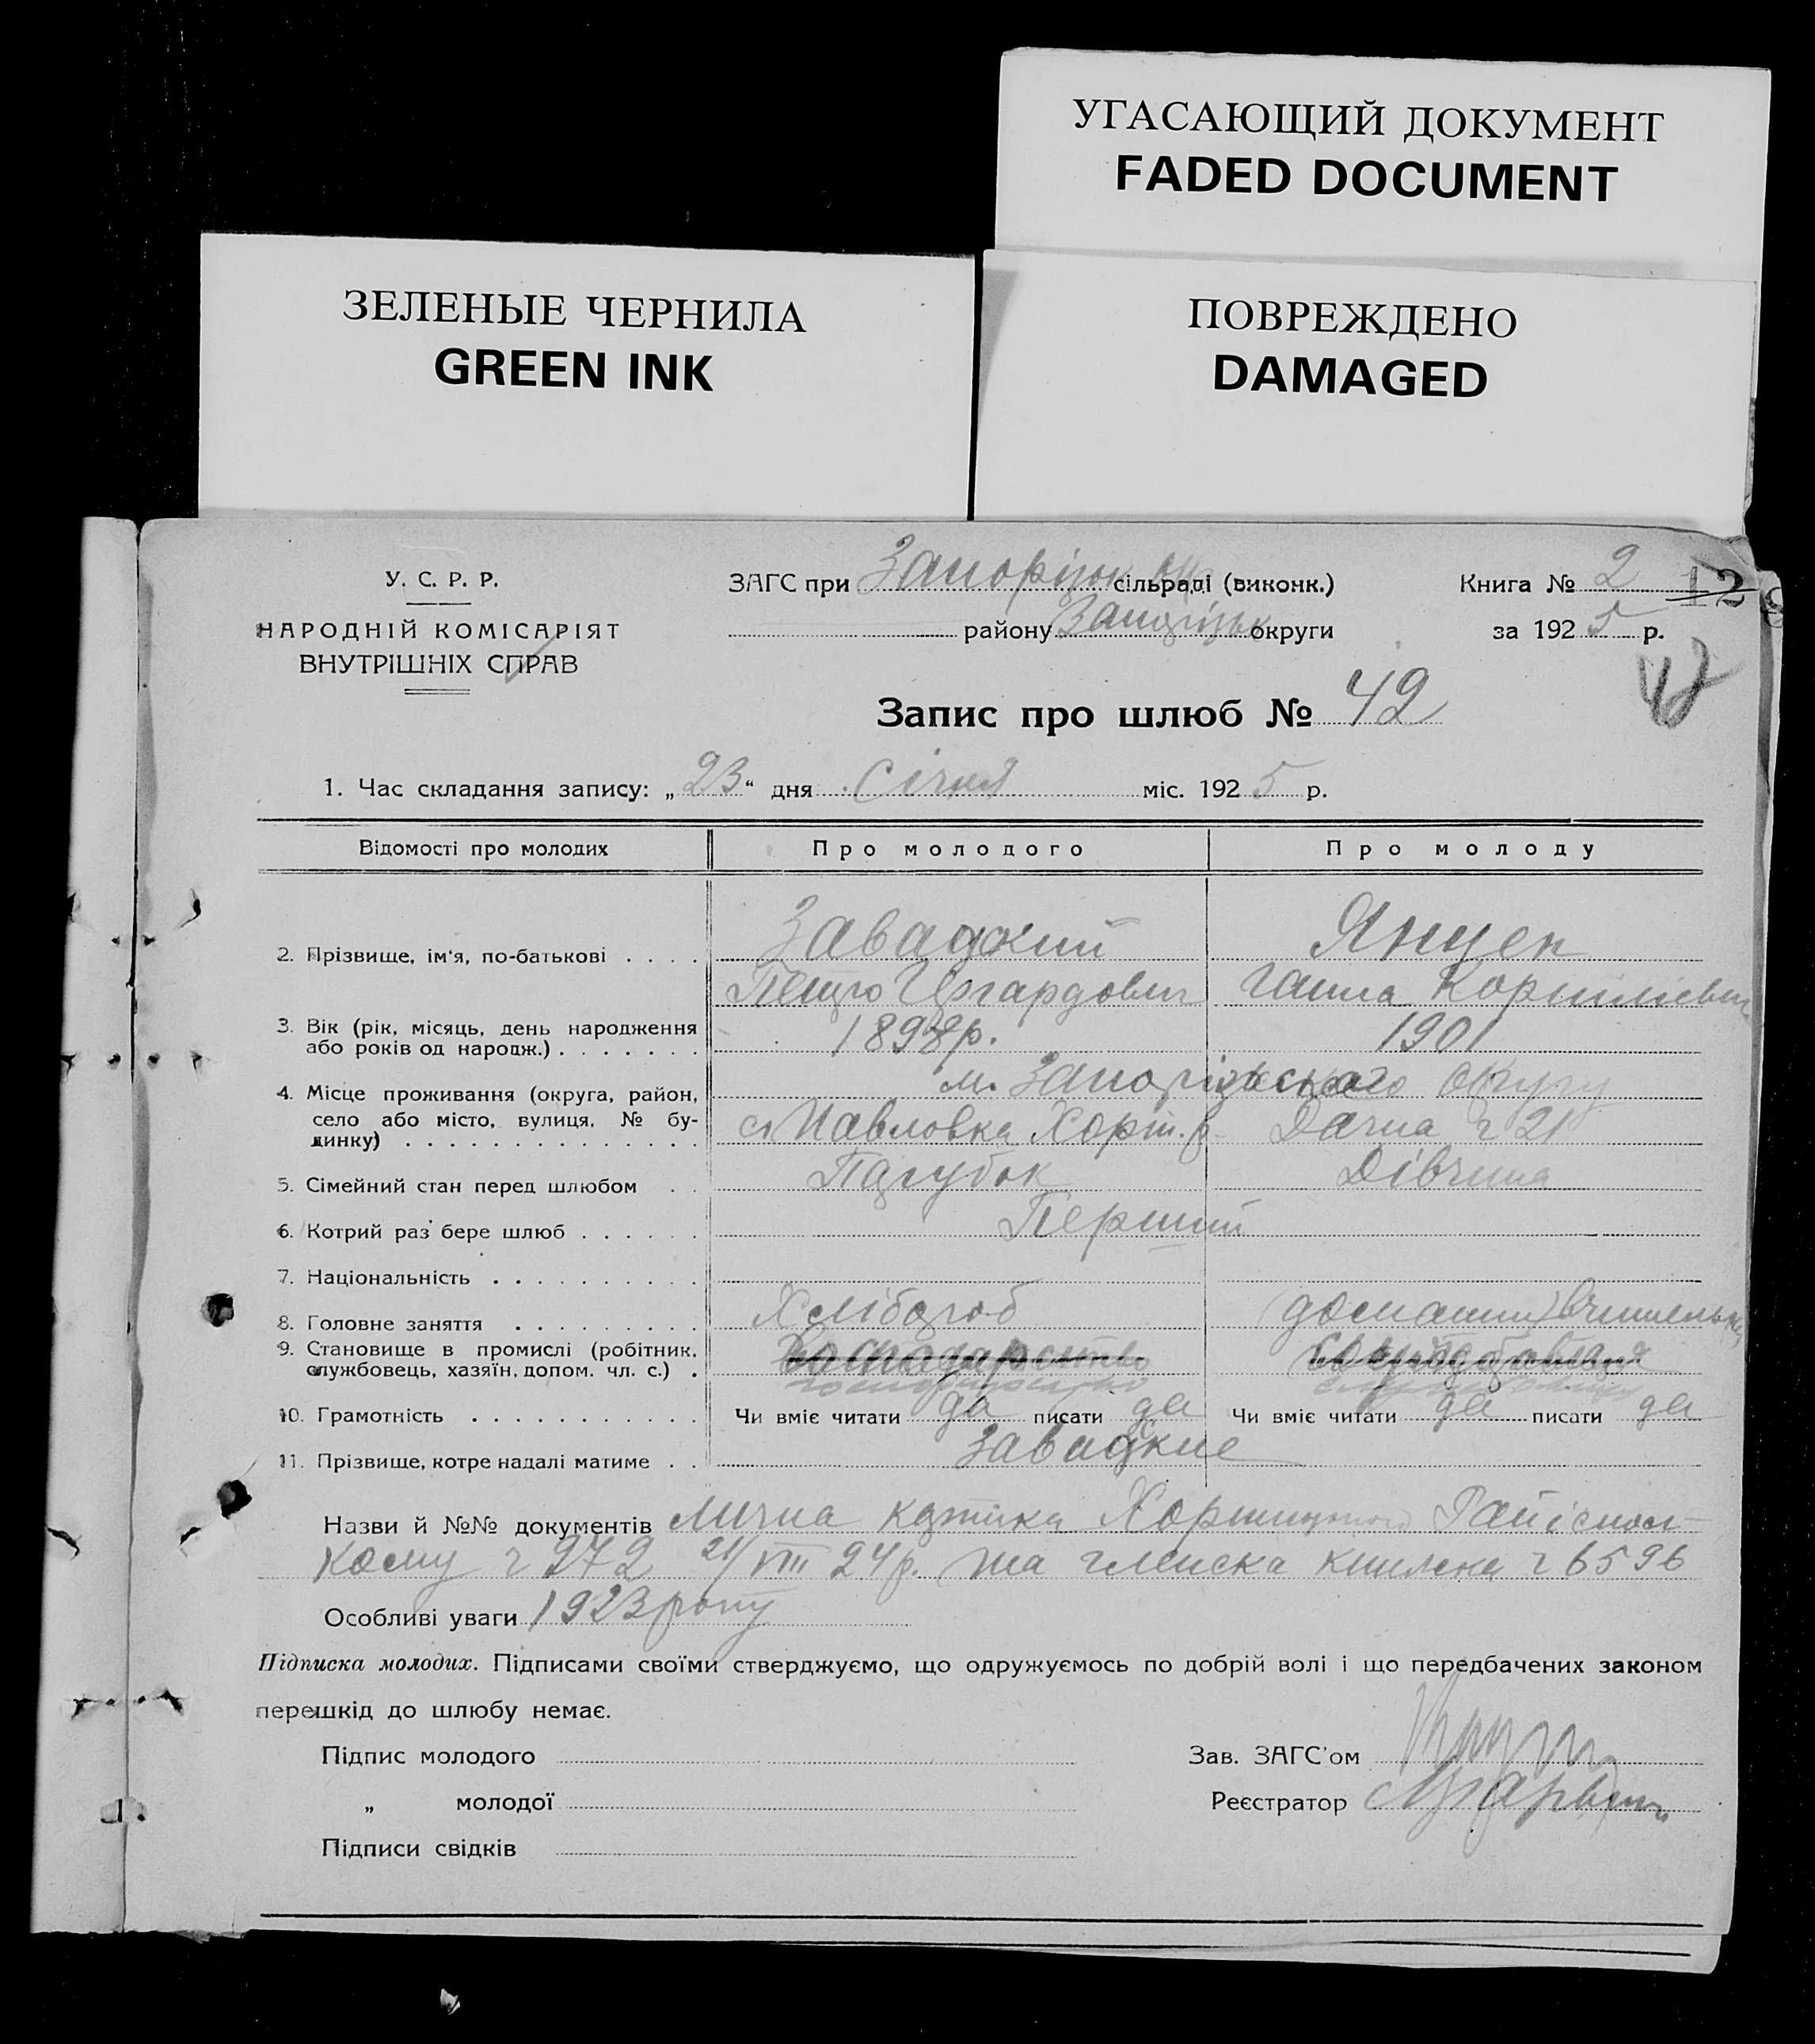 УГАСАЮЩИЙ ДОКУМЕНТ
FADED DOCUMENT
ЗЕЛЕНЫЕ ЧЕРНИЛА
GREEN INK
ПОВРЕЖДЕНО
DAMAGED
У. С. Р. Р.
НАРОДНІЙ КОМІСАРІЯТ
ВНУТРІШНІХ СПРАВ
ЗАГС при Запорізьк сільраді (виконк.)
району Запорізьк округи
Книга № 2
за 1925 р.
Запис про шлюб № 42
1. Час складання запису: „23“ дня Січня міс. 1925 р.
Відомості про молодих Про молодого Про молоду
Завадский Янцен
2. Прізвище, ім'я, по-батькові . . . .
Петро Ганна
3. Вік (рік, місяць, день народження 1898р. 1901
або років од народж.) . . . . . . .
м. Запорізського округу
4. Місце проживання (округа, район,
село або місто, вулиця, № бу- с. Павловка Хорт. р. Дачна ч 21
динку) . . . . . . . . . . . . . .
5. Сімейний стан перед шлюбом . . Парубок Дівчина
6. Котрий раз бере шлюб . . . . . . Перший
7. Національність . . . . . . . . . .
8. Головне заняття . . . . . . . . . Хлібороб вчителька
9. Становище в промислі (робітник,
службовець, хазяїн, допом. чл. с.) .
10. Грамотність . . . . . . . . . . . Чи вміє читати да писати да Чи вміє читати да писати да
11. Прізвище, котре надалі матиме . . Завадские
Назви й №№ документів Лична картка
кому ч 272 21/VIII 24р. та членска книжка ч 6596
Особливі уваги 1923 року
Підписка молодих. Підписами своїми стверджуємо, що одружуємось по добрій волі і що передбачених законом
перешкід до шлюбу немає.
Підпис молодого
„ молодої
Підписи свідків
Зав. ЗАГС'ом
Реєстратор